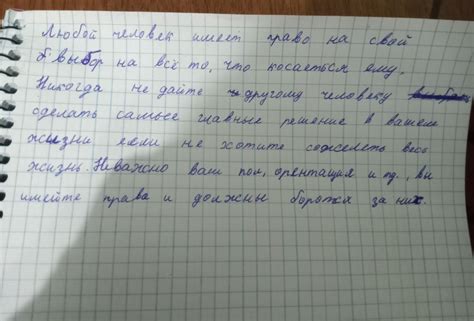 Любой человек имеет право на свой
выбор на всё то, что касаеться ему.
Никогда не дайте другому человеку
сделать самые главные решение в вашем
жызни если не хотите сожелеть всю
жизнь. Неважно ваш пол, орентация и тд., вы
имейте права и должны боротся за них.